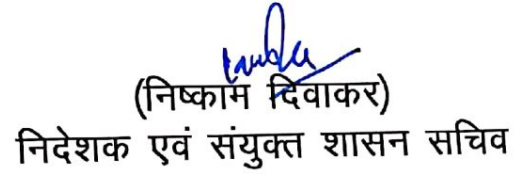 (निष्काम दिवाकर)
निदेशक एवं संयुक्त शासन सचिव